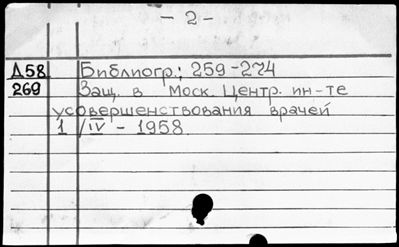 - 2 -
Д58 Библиогр.: 259-274
269 Защ. в Моск. Центр. ин-те
усовершенствования врачей
1/IV - 1958